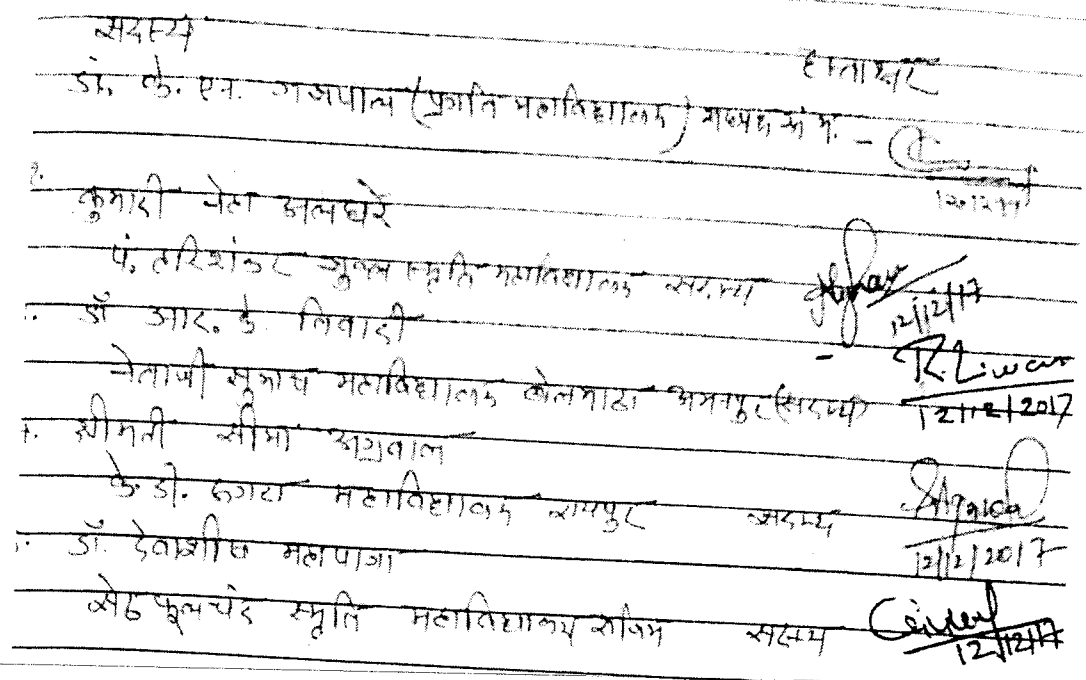 सदस्य हस्ताक्षर
डॉ. के. एन. गजपाल (प्रगति महाविद्यालय) -
कुमारी
पं. हरिशंकर शुक्ल स्मृति महाविद्यालय सदस्य 12/12/17
डॉ आर. के. तिवारी -
नेताजी सुभाष महाविद्यालय अभनपुर (सदस्य) R. Tiwari 12/12/2017
श्रीमती सीमा अग्रवाल
के. डी. रूंगटा महाविद्यालय रायपुर सदस्य 12/12/2017
डॉ. देवाशीष महापात्रा
सेठ फूलचंद स्मृति महाविद्यालय राजिम सदस्य 12/12/17